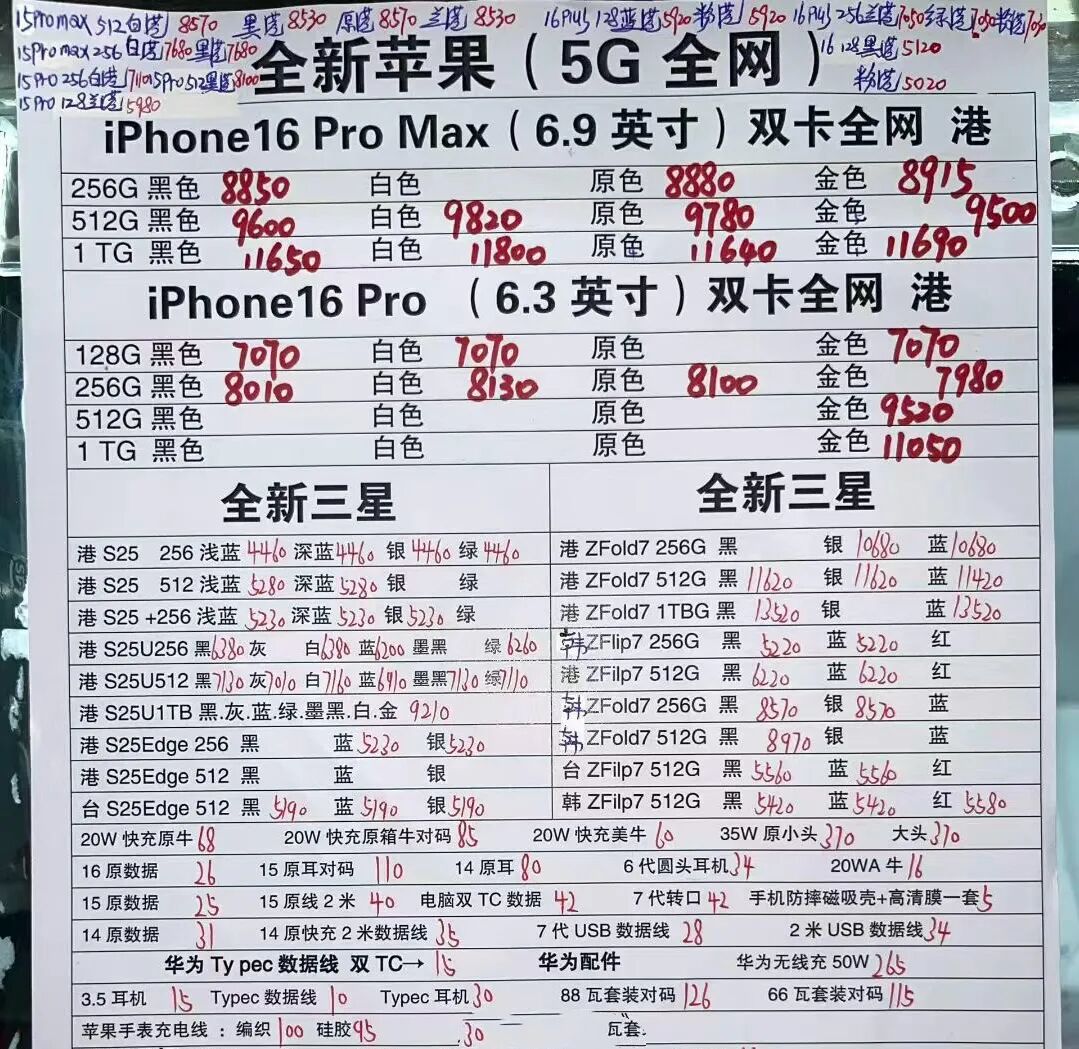 15Promax 512白塔8570 黑塔8530 原塔8570 兰塔8530 16Plus 128蓝塔5920 粉塔5920 16Plus 256兰塔7050绿塔7050粉塔7050
15Promax 256白塔7680黑塔7680 16 128黑塔5120
15Pro 256白塔7110 15Pro 512黑塔8100 粉塔5020
15Pro 128兰塔5980
全新苹果（5G 全网）
iPhone16 Pro Max（6.9 英寸）双卡全网 港
256G 黑色 8850 白色 原色 8880 金色 8915
512G 黑色 9600 白色 9820 原色 9780 金色 9500
1 TG 黑色 11650 白色 11800 原色 11640 金色 11690
iPhone16 Pro （6.3 英寸）双卡全网 港
128G 黑色 7070 白色 7070 原色 金色 7070
256G 黑色 8010 白色 8130 原色 8100 金色 7980
512G 黑色 白色 原色 金色 9520
1 TG 黑色 白色 原色 金色 11050
全新三星
港 S25 256 浅蓝 4460 深蓝 4460 银 4460 绿 4460
港 S25 512 浅蓝 5280 深蓝 5280 银 绿
港 S25 +256 浅蓝 5230 深蓝 5230 银 5230 绿
港 S25U256 黑 6380 灰 白 6380 蓝 6200 墨黑 绿 6260
港 S25U512 黑 7130 灰 7010 白 7160 蓝 6910 墨黑 7130 绿 7110
港 S25U1TB 黑.灰.蓝.绿.墨黑.白.金 9210
港 S25Edge 256 黑 蓝 5230 银 5230
港 S25Edge 512 黑 蓝 银
台 S25Edge 512 黑 5190 蓝 5190 银 5190
全新三星
港 ZFold7 256G 黑 银 10680 蓝 10680
港 ZFold7 512G 黑 11620 银 11620 蓝 11420
港 ZFold7 1TBG 黑 13520 银 蓝 13520
韩 ZFlip7 256G 黑 5220 蓝 5220 红
港 ZFilp7 512G 黑 6220 蓝 6220 红
韩 ZFold7 256G 黑 8570 银 8570 蓝
韩 ZFold7 512G 黑 8970 银 蓝
台 ZFilp7 512G 黑 5560 蓝 5560 红
韩 ZFilp7 512G 黑 5420 蓝 5420 红 5580
20W 快充原牛 68 20W 快充原箱牛对码 85 20W 快充美牛 60 35W 原小头 370 大头 370
16 原数据 26 15 原耳对码 110 14 原耳 80 6 代圆头耳机 34 20WA 牛 16
15 原数据 25 15 原线 2 米 40 电脑双 TC 数据 42 7 代转口 42 手机防摔磁吸壳+高清膜一套 5
14 原数据 31 14 原快充 2 米数据线 35 7 代 USB 数据线 28 2 米 USB 数据线 34
华为 Ty pec 数据线 双 TC→ 15 华为配件 华为无线充 50W 265
3.5 耳机 15 Typec 数据线 10 Typec 耳机 30 88 瓦套装对码 126 66 瓦套装对码 115
苹果手表充电线 ：编织 100 硅胶 95 30 瓦套